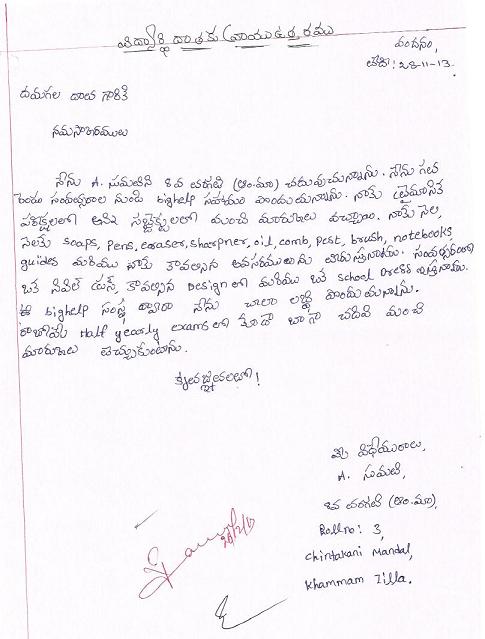 విద్యార్థి దాతకు వ్రాయు ఉత్తరము
వందనం,
తేది: 28-11-13.
దయగల దాత గారికి
నమస్కారములు
నేను A. సుమతి 8వ తరగతి (ఆం.మా) చదువుచున్నాను. నేను గత
రెండు సంవత్సరాల నుండి bighelp సహాయం పొందుచున్నాను. నాకు త్రైమాసిక
పరీక్షలలో అన్ని సబ్జెక్టులలో మంచి మార్కులు వచ్చాయి. నాకు నెల,
నెలకు soaps, pens, eraser, sharpner, oil, comb, pest, brush, notebooks
guides మరియు నాకు కావల్సిన అవసరములను తీరుస్తున్నారు. సంవత్సరంలో
ఒక సివిల్ డ్రస్, కావల్సిన Design లో మరియు ఒక school Dress ఇస్తున్నారు.
ఈ bighelp సంస్థ ద్వారా నేను చాలా లబ్ధి పొందుచున్నాను.
రాబోయే Half yearly exams లో కూడా బాగా చదివి మంచి
మార్కులు తెచ్చుకుంటాను.
కృతజ్ఞతలతో!
మీ విధేయురాలు,
A. సుమతి,
8వ తరగతి (ఆం.మా),
Roll no: 3,
Chintakani Mandal,
Khammam Zilla.